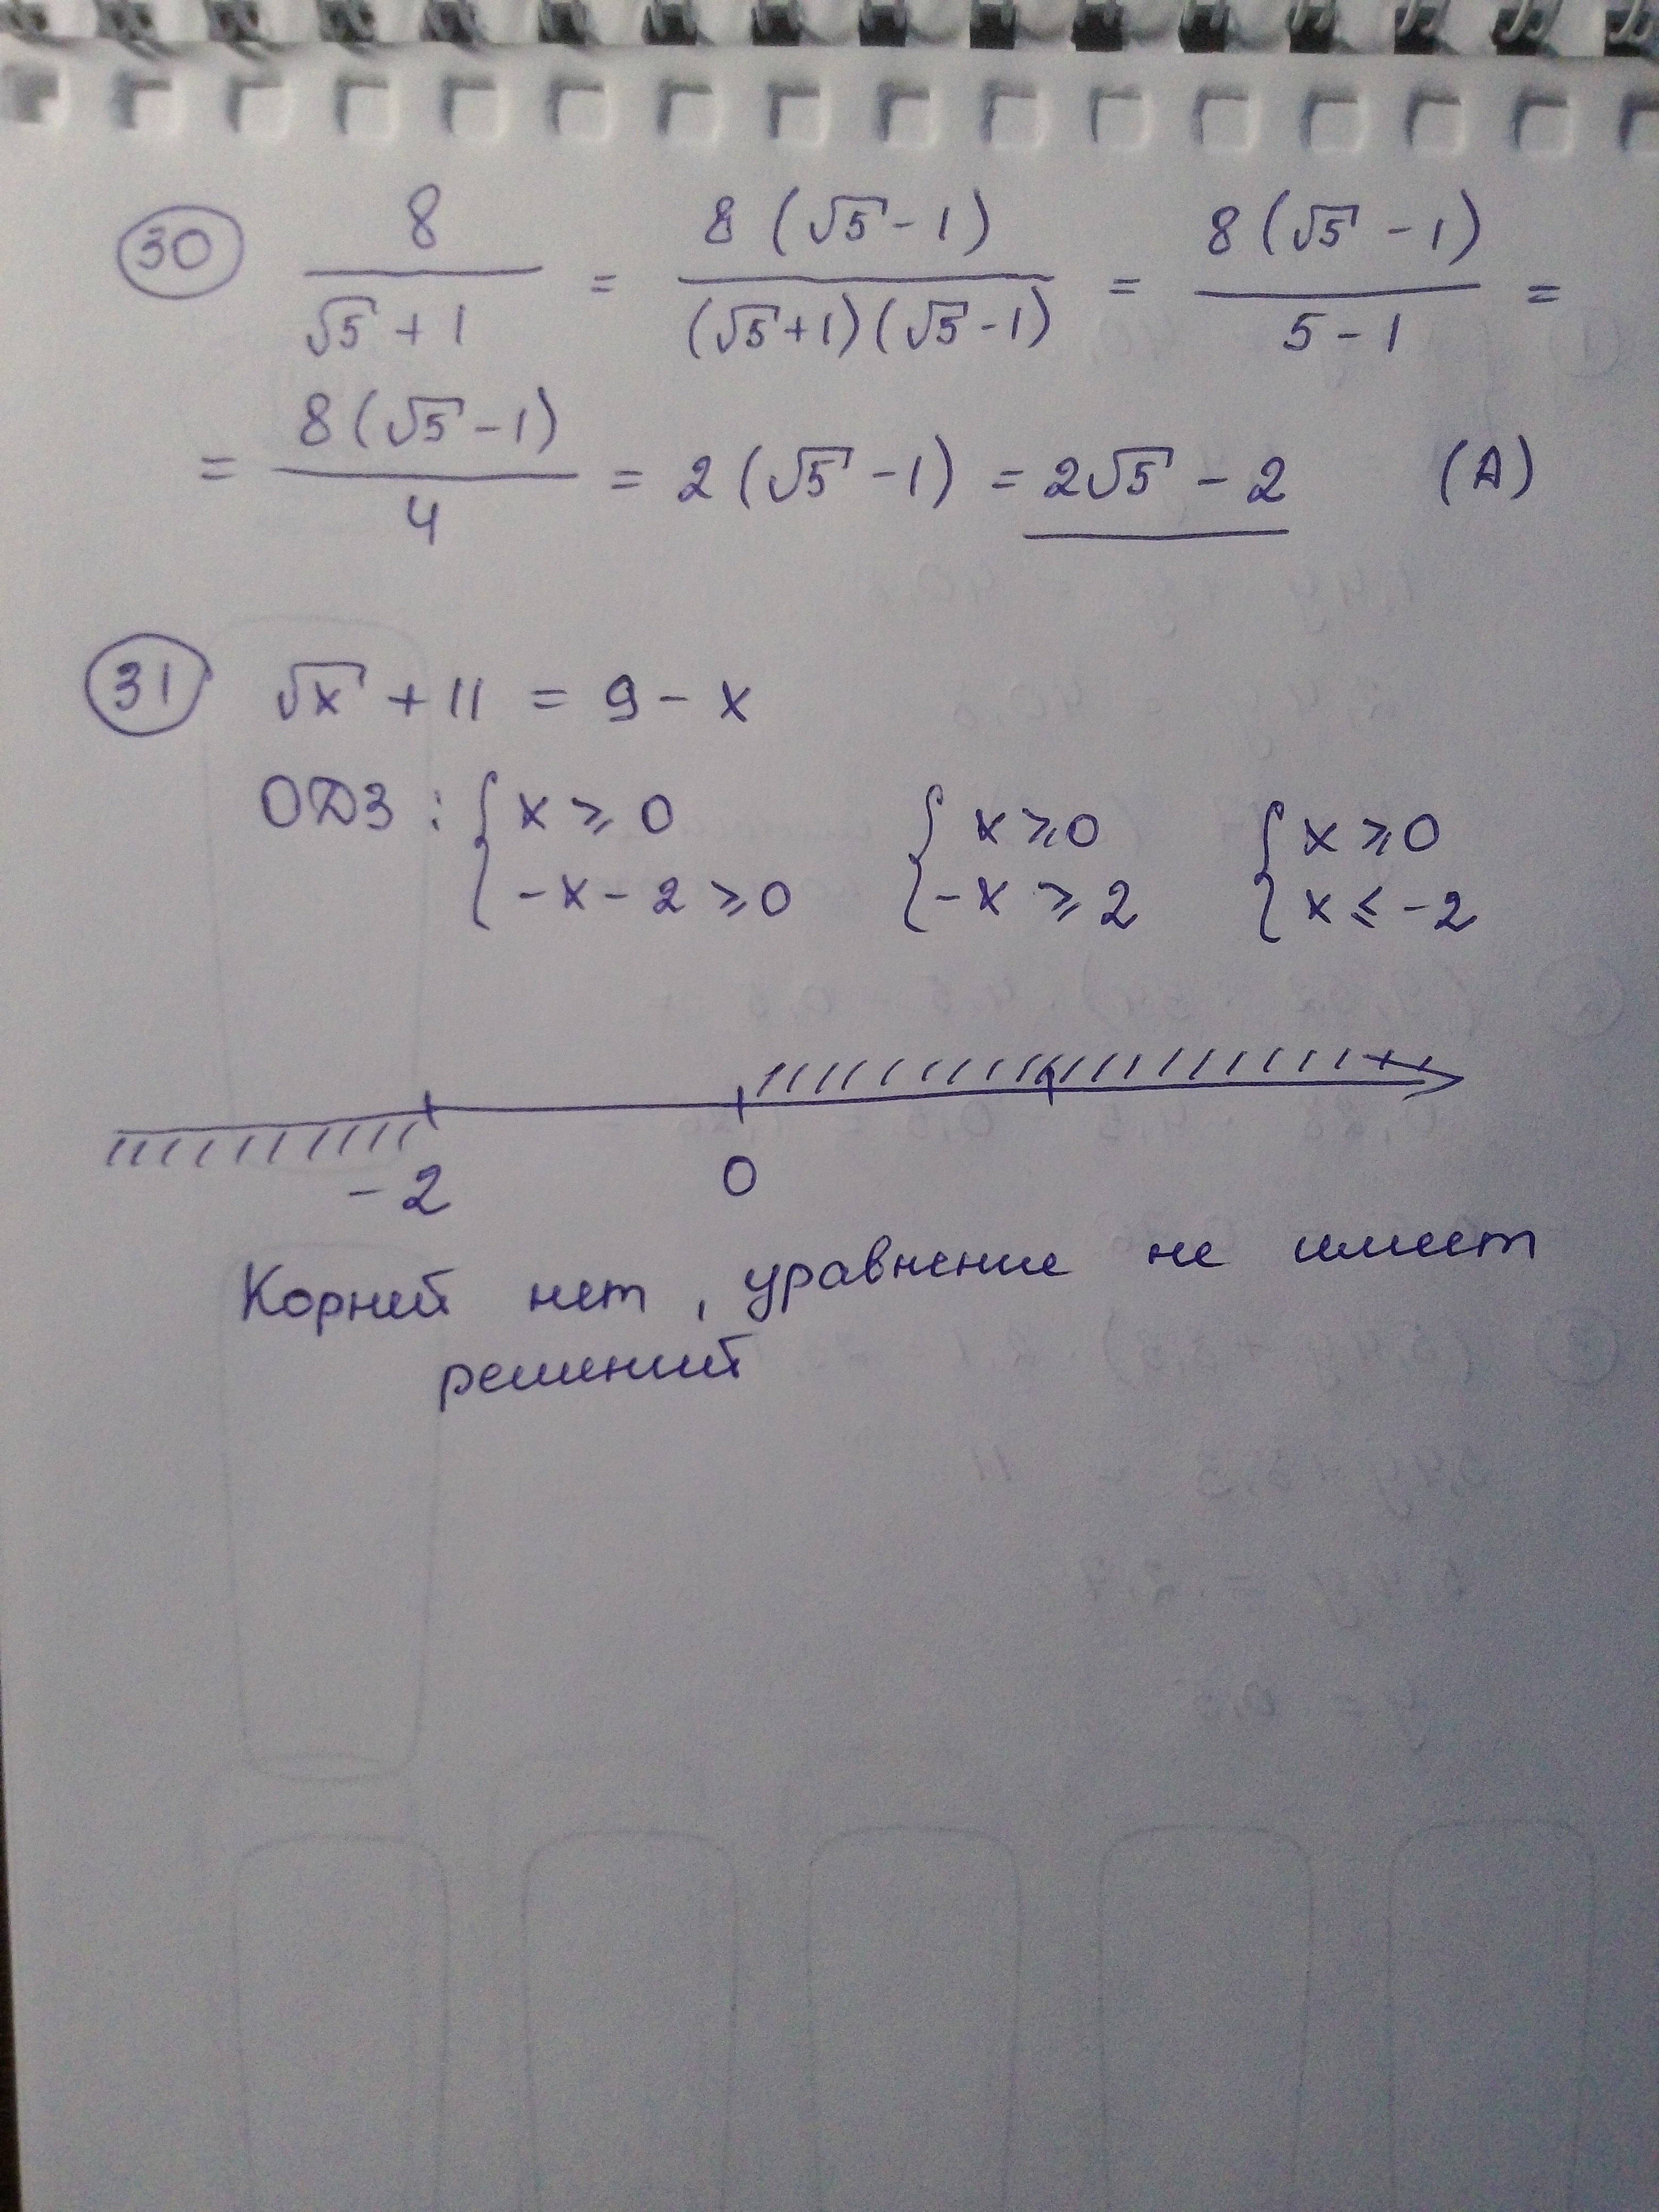 30 8/(√5 + 1) = 8(√5 - 1)/((√5+1)(√5-1)) = 8(√5 - 1)/(5 - 1) =
= 8(√5 - 1)/4 = 2(√5 - 1) = 2√5 - 2 (A)
31 √x + 11 = 9 - x
ОДЗ: { x ⩾ 0 { x ⩾ 0 { x ⩾ 0
-x - 2 ⩾ 0 -x ⩾ 2 x ⩽ -2
-2 0
Корней нет, уравнение не имеет
решений